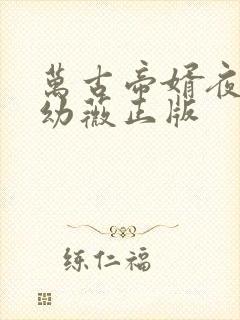 萬古帝婿夜
幼薇正版
练仁福